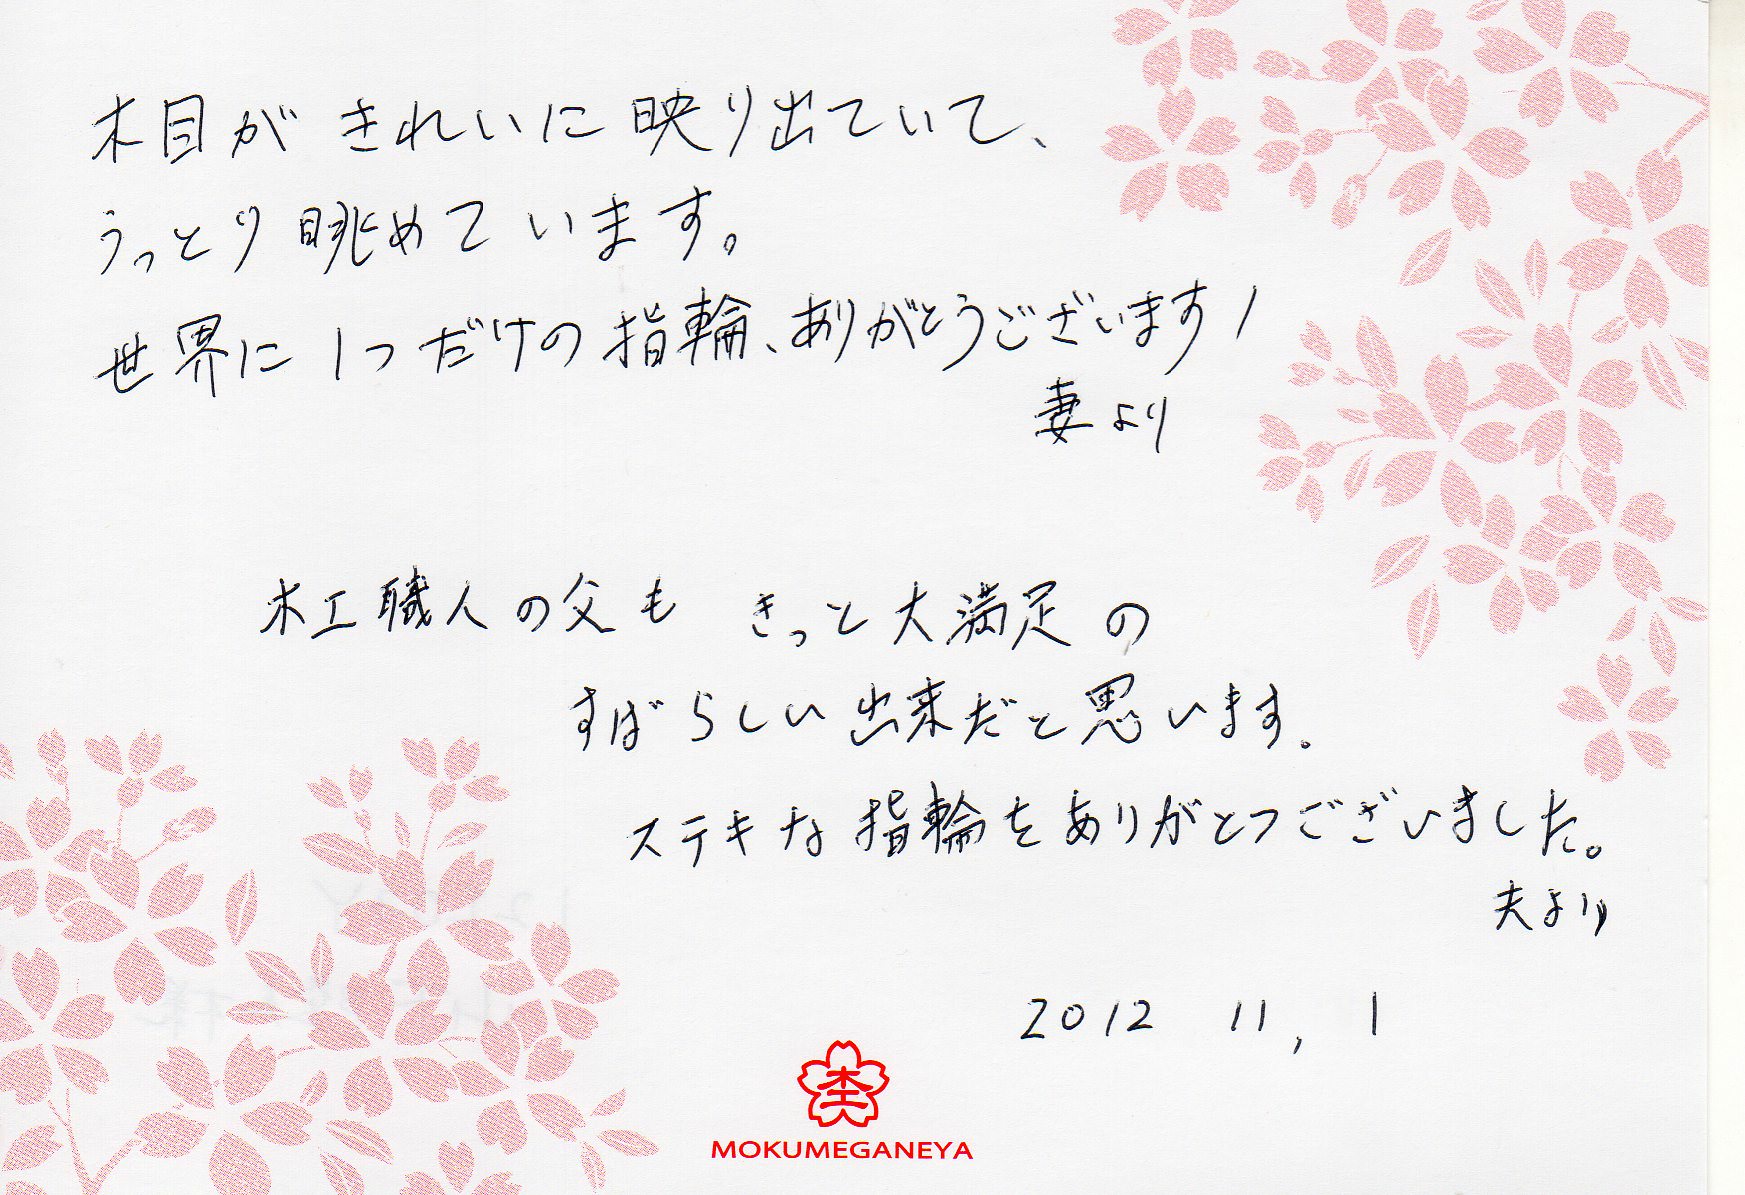 木目がきれいに映り出ていて、
うっとり眺めています。
世界に1つだけの指輪、ありがとうございます!
妻より
木工職人の父も きっと大満足の
すばらしい出来だと思います。
ステキな指輪をありがとうございました。
夫より
2012 11, 1
MOKUMEGANEYA